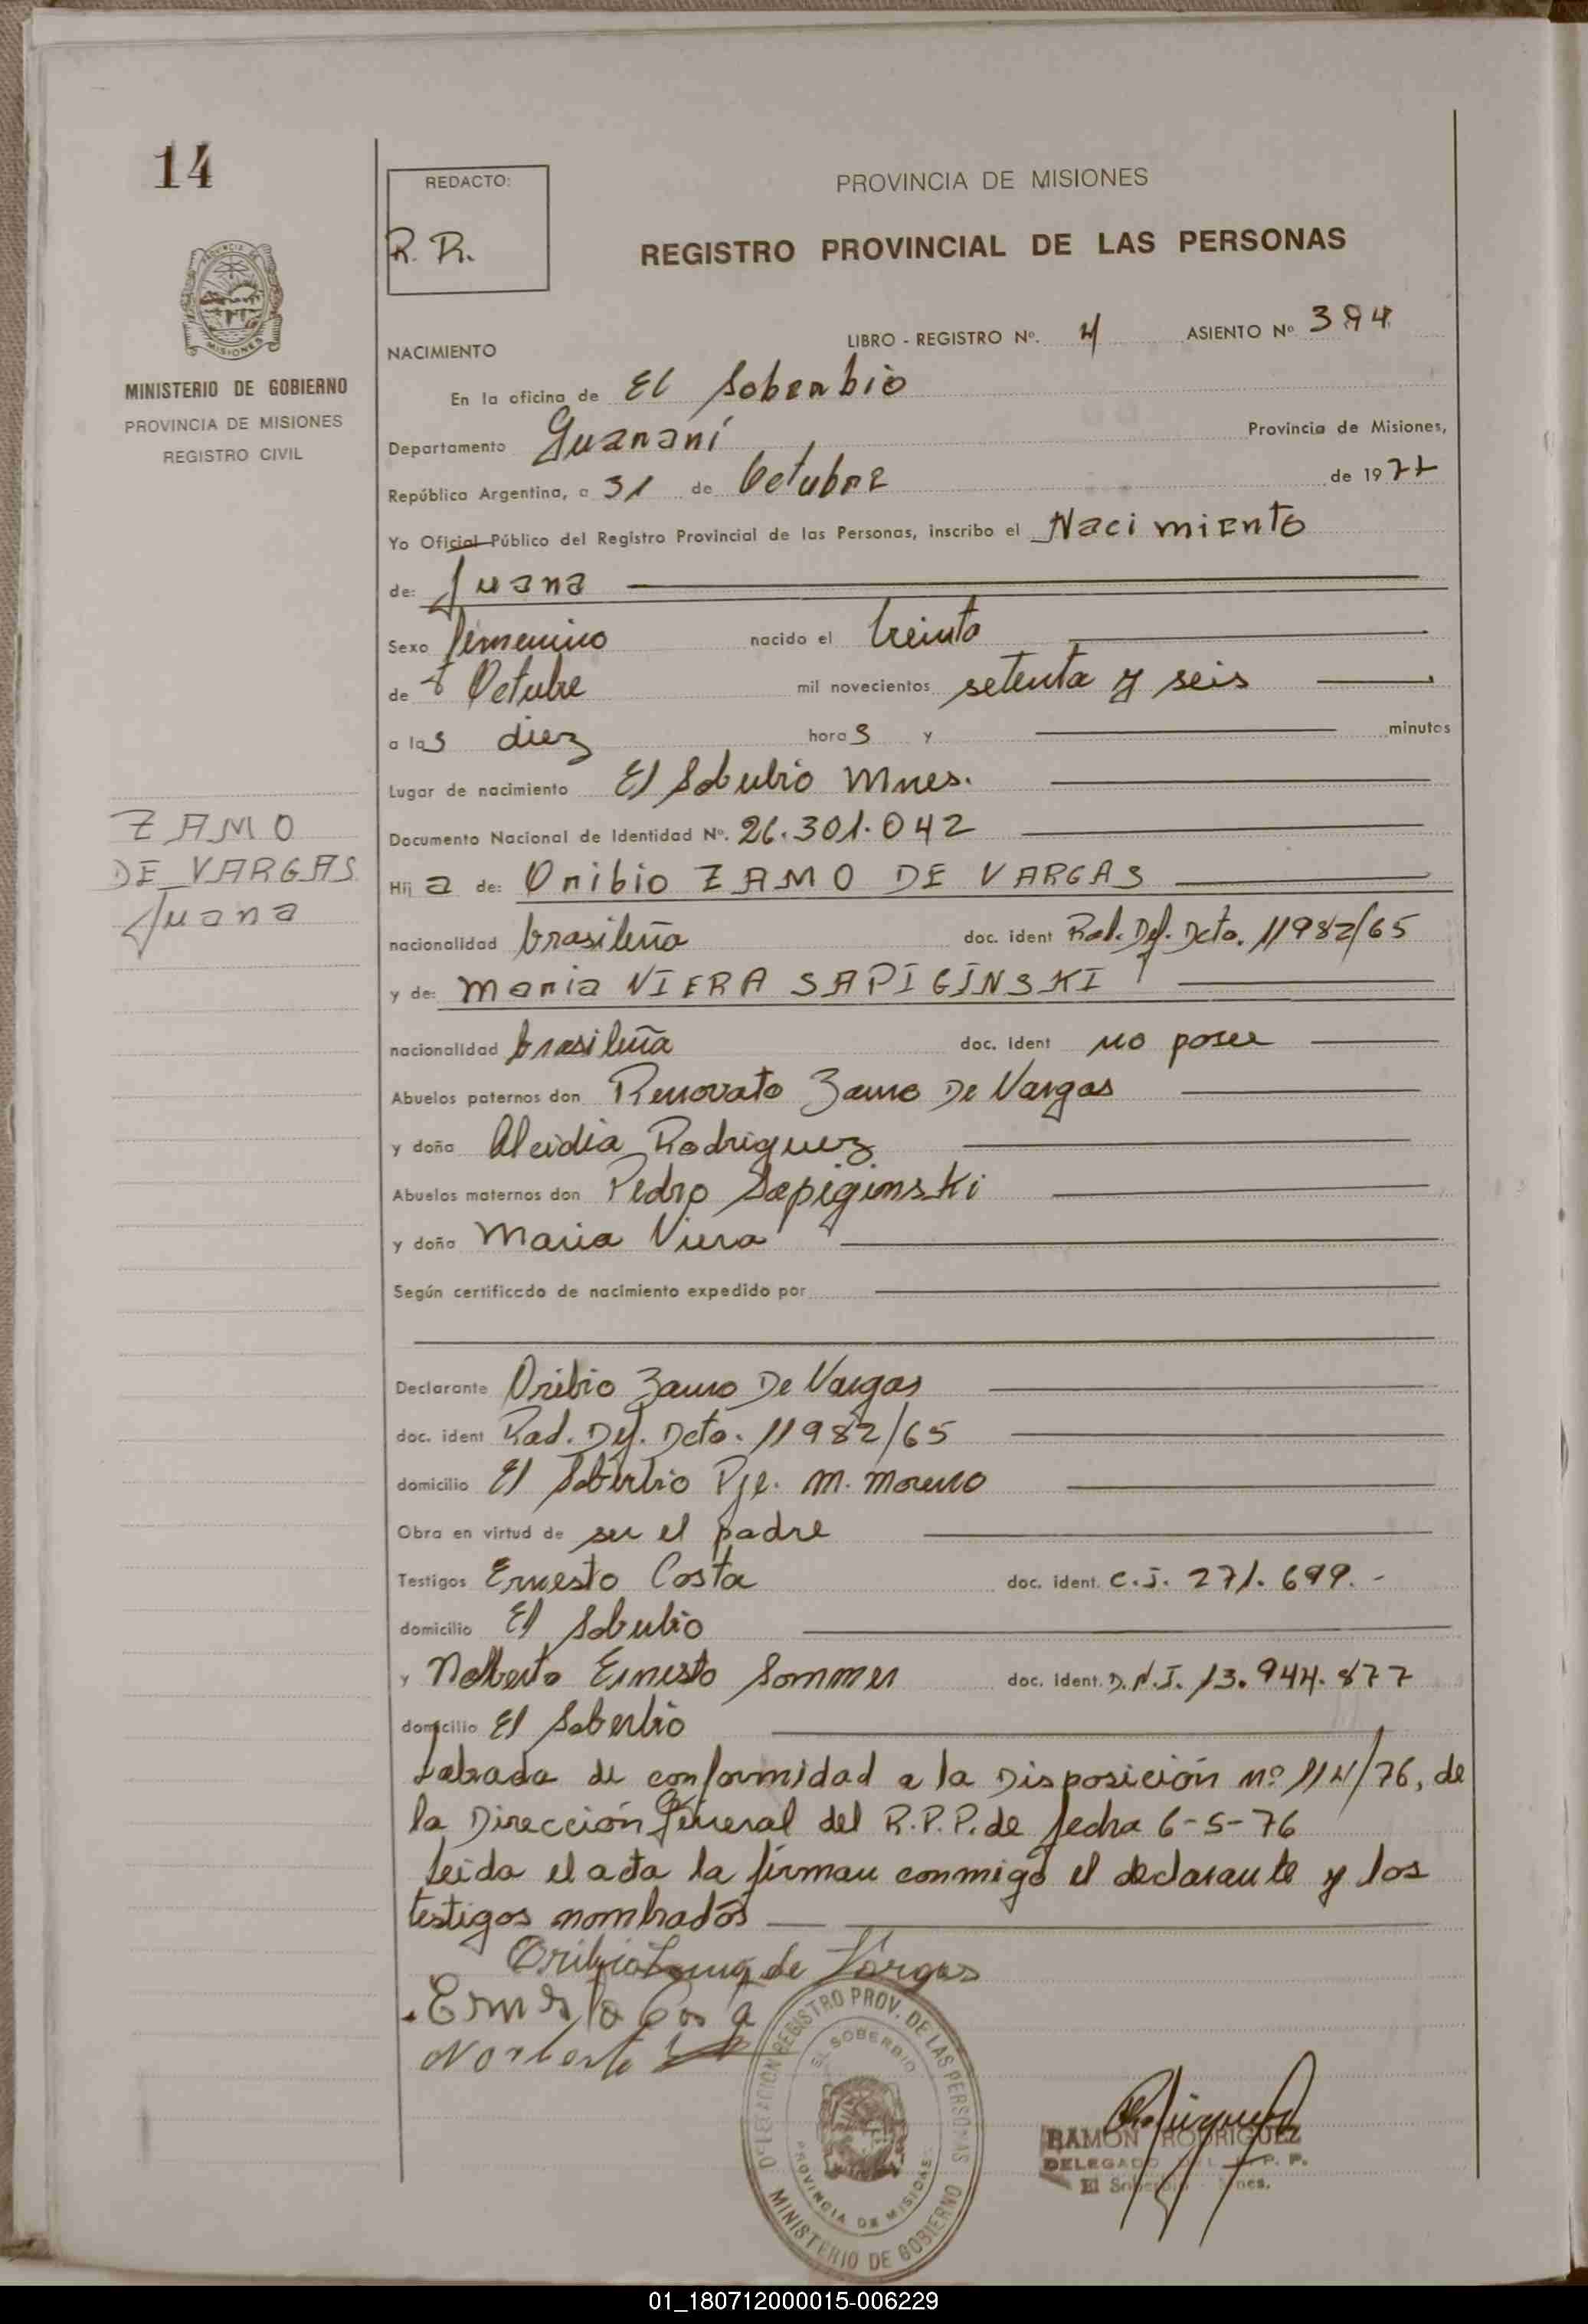 14
REDACTO:
R. R.
PROVINCIA DE MISIONES
REGISTRO PROVINCIAL DE LAS PERSONAS
PROVINCIA
MISIONES
MINISTERIO DE GOBIERNO
PROVINCIA DE MISIONES
REGISTRO CIVIL
NACIMIENTO LIBRO - REGISTRO Nº. 4 ASIENTO Nº 394
En la oficina de El Soberbio
Departamento Guaraní Provincia de Misiones,
República Argentina, a 31 de Octubre de 1977
Yo Oficial Público del Registro Provincial de las Personas, inscribo el Nacimiento
de: Juana
Sexo femenino nacido el treinta
de Octubre mil novecientos setenta y seis
a las diez horas y minutos
Lugar de nacimiento El Soberbio Mnes.
Documento Nacional de Identidad Nº. 26.301.042
ZAMO
DE VARGAS
Juana
Hij a de: Oribio ZAMO DE VARGAS
nacionalidad brasileña doc. ident Rad. Def. Dcto. 11982/65
y de: Maria VIERA SAPIGINSKI
nacionalidad brasileña doc. ident no posee
Abuelos paternos don Renovato Zamo De Vargas
y doña Alcidia Rodriguez
Abuelos maternos don Pedro Sapiginski
y doña Maria Viera
Según certificado de nacimiento expedido por
Declarante Oribio Zamo De Vargas
doc. ident Rad. Def. Dcto. 11982/65
domicilio El Soberbio Pje. M. Moreno
Obra en virtud de ser el padre
Testigos Ernesto Costa doc. ident. C.I. 271.699.-
domicilio El Soberbio
y Norberto Ernesto Sommer doc. ident. D.N.I. 13.944.877
domicilio El Soberbio
Labrada de conformidad a la Disposición nº 114/76, de
la Dirección General del R.P.P. de fecha 6-5-76
Leida el acta la firman conmigo el declarante y los
testigos nombrados
Oribio Zamo de Vargas
Ernesto Costa
Norberto
DELEGACION REGISTRO PROV. DE LAS PERSONAS
EL SOBERBIO
PROVINCIA DE MISIONES
MINISTERIO DE GOBIERNO
RAMON RODRIGUEZ
DELEGADO DEL R. P. P.
El Soberbio - Mnes.
01_180712000015-006229